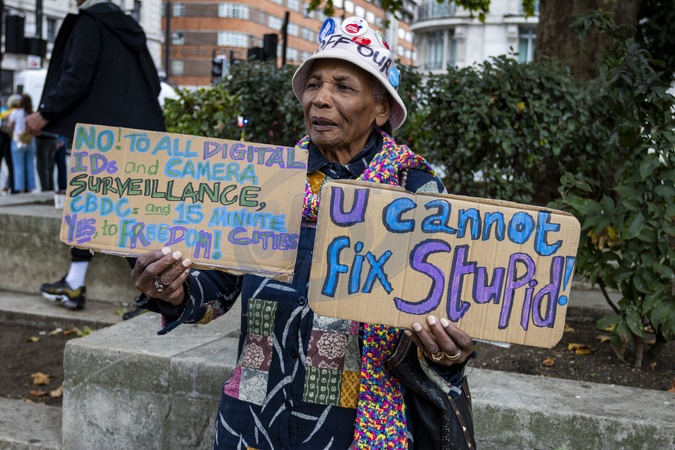 OFF OUR
NO! TO ALL DIGITAL
IDs and CAMERA
SURVEILLANCE,
CBDCs and 15 MINUTE
YES to FREEDOM! CITIES
U cannot
fix Stupid!